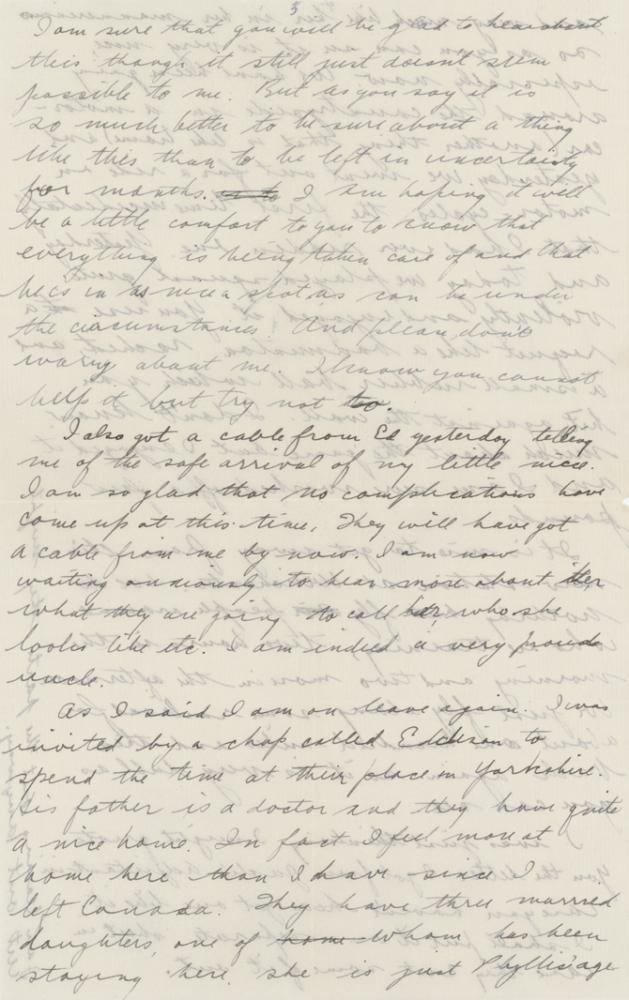 3
I am sure that you will be glad to hear about
this though it still just doesnt seem
possible to me. But as you say it is
so much better to be sure about a thing
like this than to be left in uncertainty
for months. I am hoping it will
be a little comfort to you to know that
everything is being taken care of and that
he is in as nice a spot as can be under
the circumstances! And please dont
worry about me. I know you cannot
help it but try not to.
I also got a cable from Ed yesterday telling
me of the safe arrival of my little niece.
I am so glad that no complications have
come up at this time. They will have got
a cable from me by now. I am now
waiting anxiously to hear more about her
what they are going to call her who she
looks like etc. I am indeed a very proud
uncle.
As I said I am on leave again. I was
invited by a chap called Eddison to
spend the time at their place in Yorkshire.
His father is a doctor and they have quite
a nice home. In fact I feel more at
home here than I have since I
left Canada. They have three married
daughters, one of whom has been
staying here. she is just Phyllis' age